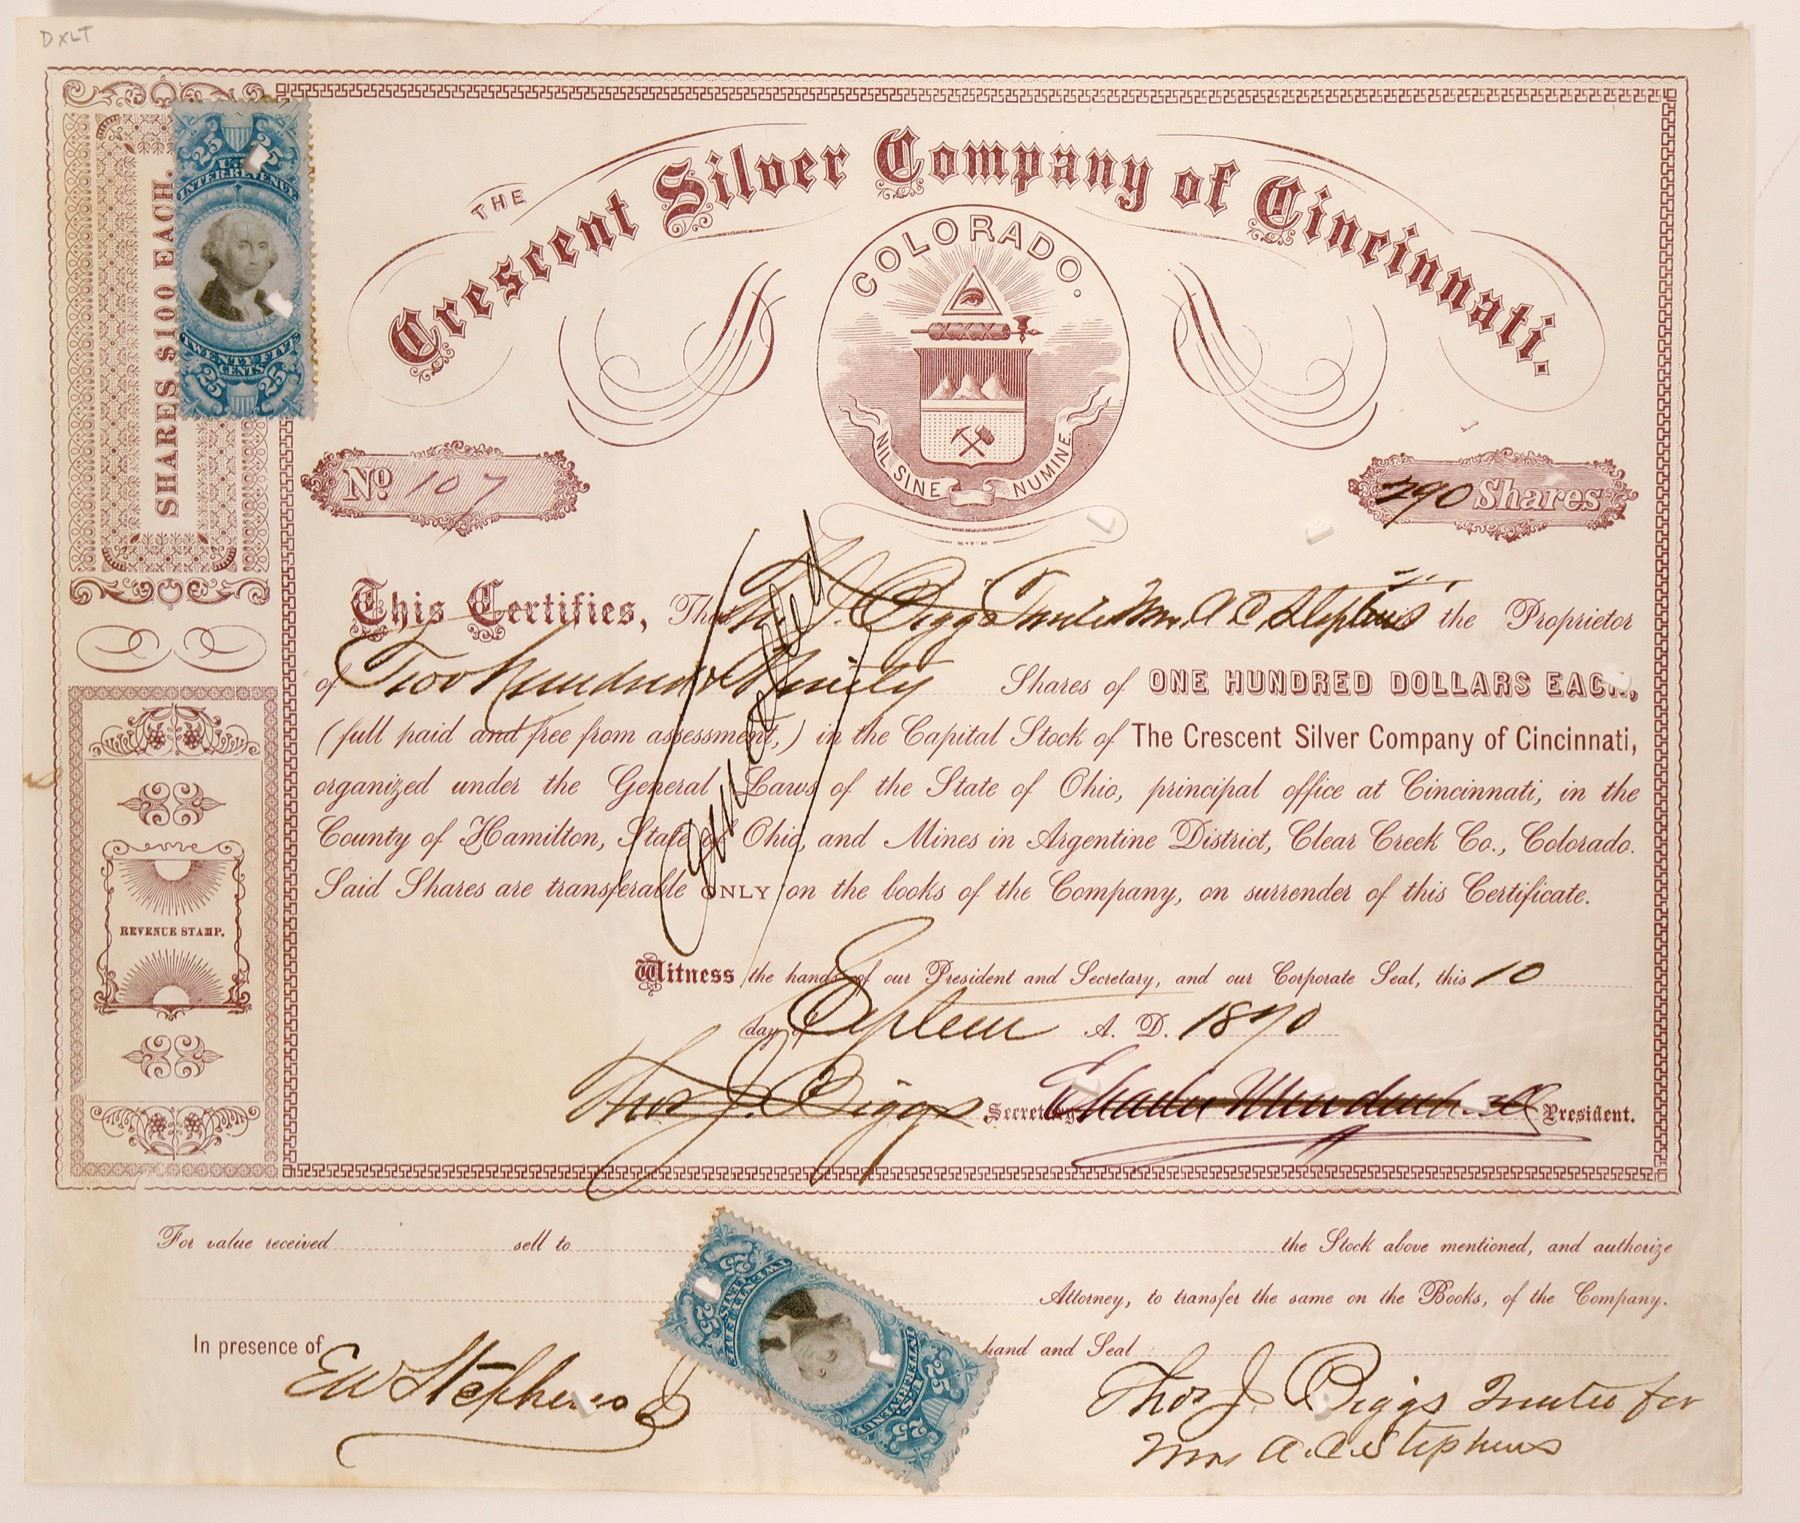 DXLT
SHARES $100 EACH.
25 25
U.S.
INTER. REVENUE
TWENTY FIVE
CENTS
25 25
THE
Crescent Silver Company of Cincinnati.
COLORADO.
NIL SINE NUMINE
No. 107
290 Shares
This Certifies, That Th. J. Biggs Trustee Mrs. A C Stephens is the Proprietor
of Two hundred & Ninety Shares of ONE HUNDRED DOLLARS EACH,
(full paid and free from assessment,) in the Capital Stock of The Crescent Silver Company of Cincinnati,
organized under the General Laws of the State of Ohio, principal office at Cincinnati, in the
County of Hamilton, State of Ohio, and Mines in Argentine District, Clear Creek Co., Colorado.
Said Shares are transferable ONLY on the books of the Company, on surrender of this Certificate.
Cancelled
REVENUE STAMP.
Witness the hands of our President and Secretary, and our Corporate Seal, this 10
day of Septem A. D. 1870
Thos J. Biggs Secretary Charles Mendenhall President.
For value received sell to the Stock above mentioned, and authorize
Attorney, to transfer the same on the Books, of the Company.
In presence of hand and Seal
EW Stephens
Thos J. Biggs Trustee for
Mrs A. C. Stephens
25 25
U.S.
INTER. REVENUE
TWENTY FIVE
CENTS
25 25